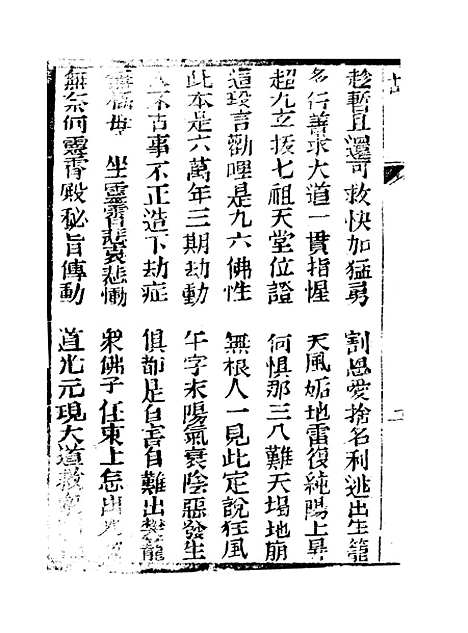 趁暫且還可救快加猛勇 割恩愛捨名利逃出生籠
多行善求大道一貫指惺 天風姤地雷復純陽上昇
超九立拔七祖天堂位證 何惧那三八難天塲地崩
這段言勸哩是九六佛性 無根人一見此定說狂風
此本是六萬年三期劫動 午字末陽氣衰陰惡發生
不古事不正造下劫症 俱都是自害自難出樊籠
無極母 坐靈霄悲哀悲慟 衆佛子在東上怎出
無奈何靈霄殿秘旨傳動 道光元現大道
二